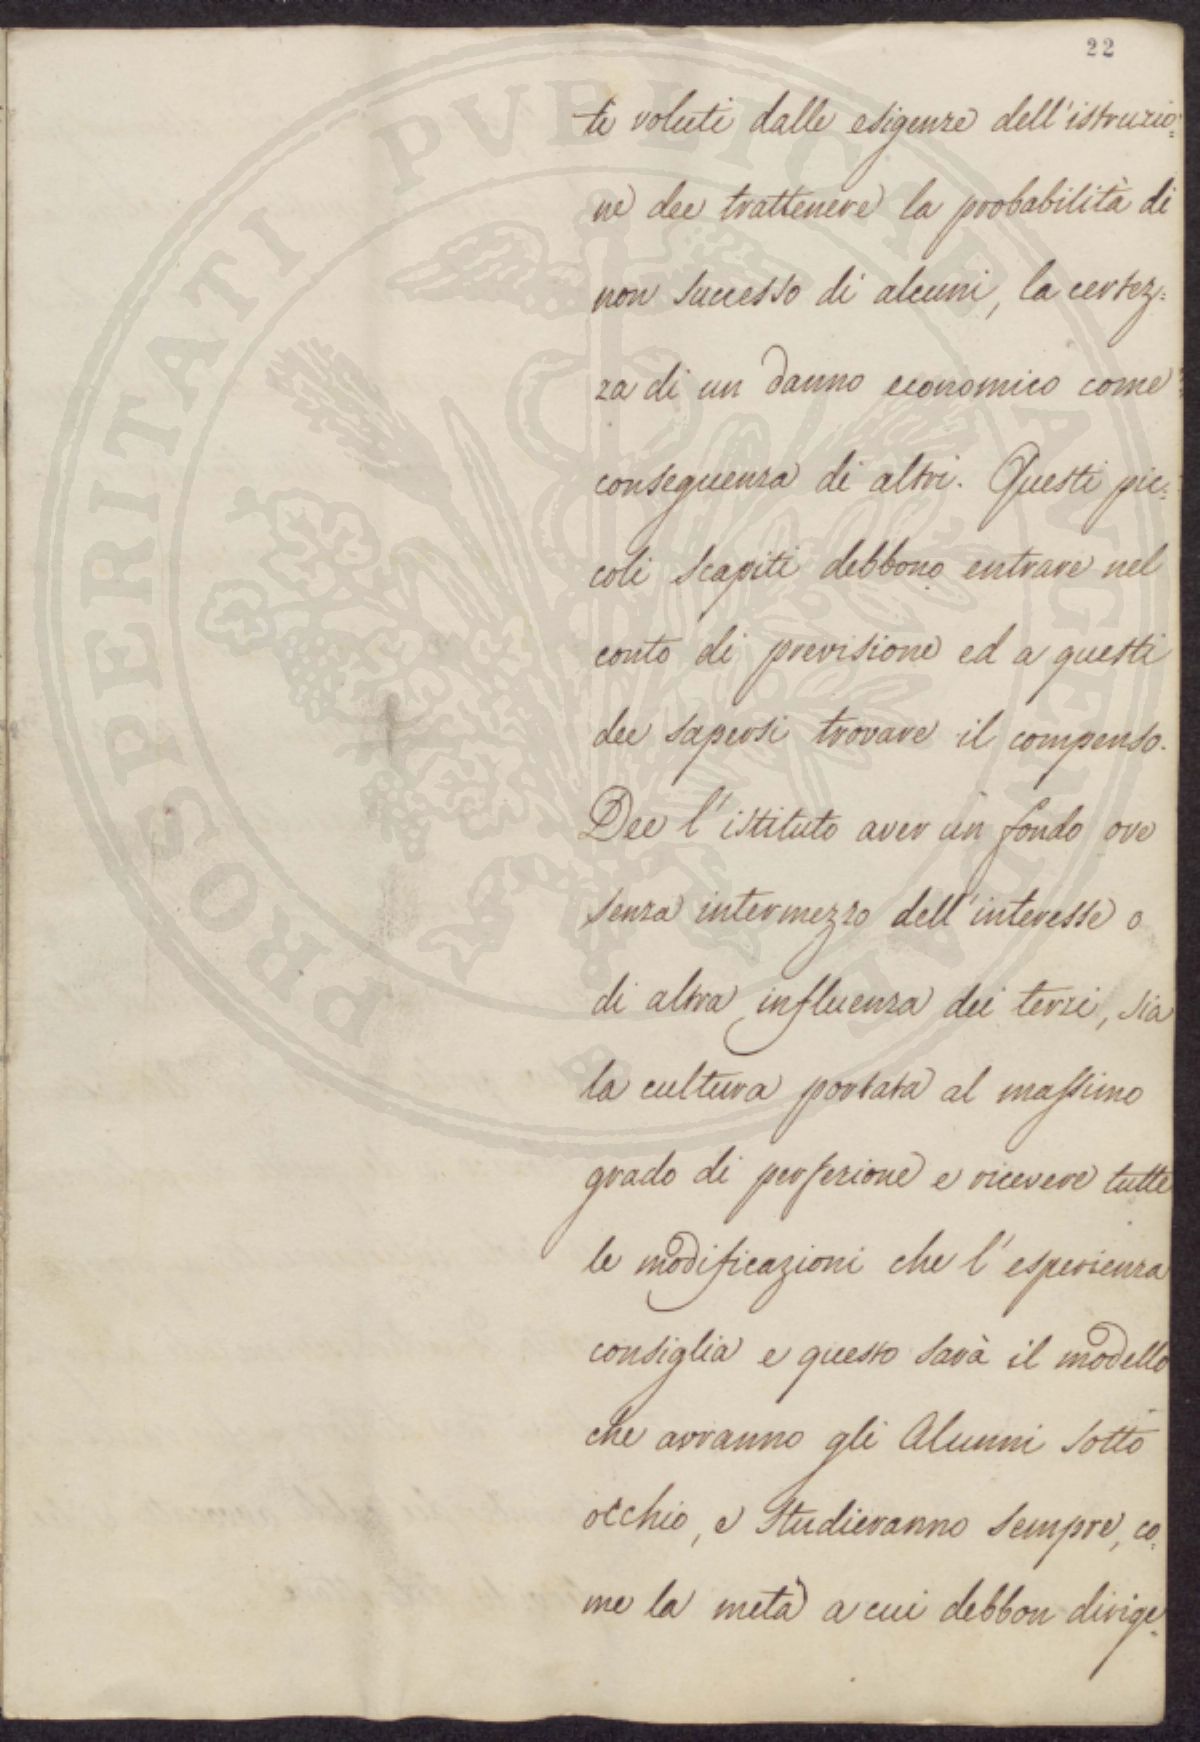 22
te voluti dalle esigenze dell'istruzio=
ne dee trattenere la probabilità di
non successo di alcuni, la certez=
za di un danno economico come
conseguenza di altri. Questi pic=
coli scapiti debbono entrare nel
conto di previsione ed a questi
dee sapersi trovare il compenso.
Dee l'istituto aver un fondo ove
senza intermezzo dell'interesse o
di altra influenza dei terzi, sia
la cultura portata al massimo
grado di perfezione e ricevere tutte
le modificazioni che l'esperienza
consiglia e questo sarà il modello
che avranno gli Alunni sotto
occhio, e studieranno sempre, co=
me la metà a cui debbon dirige=
PROSPERITATI PVBLICAE AVGENDAE